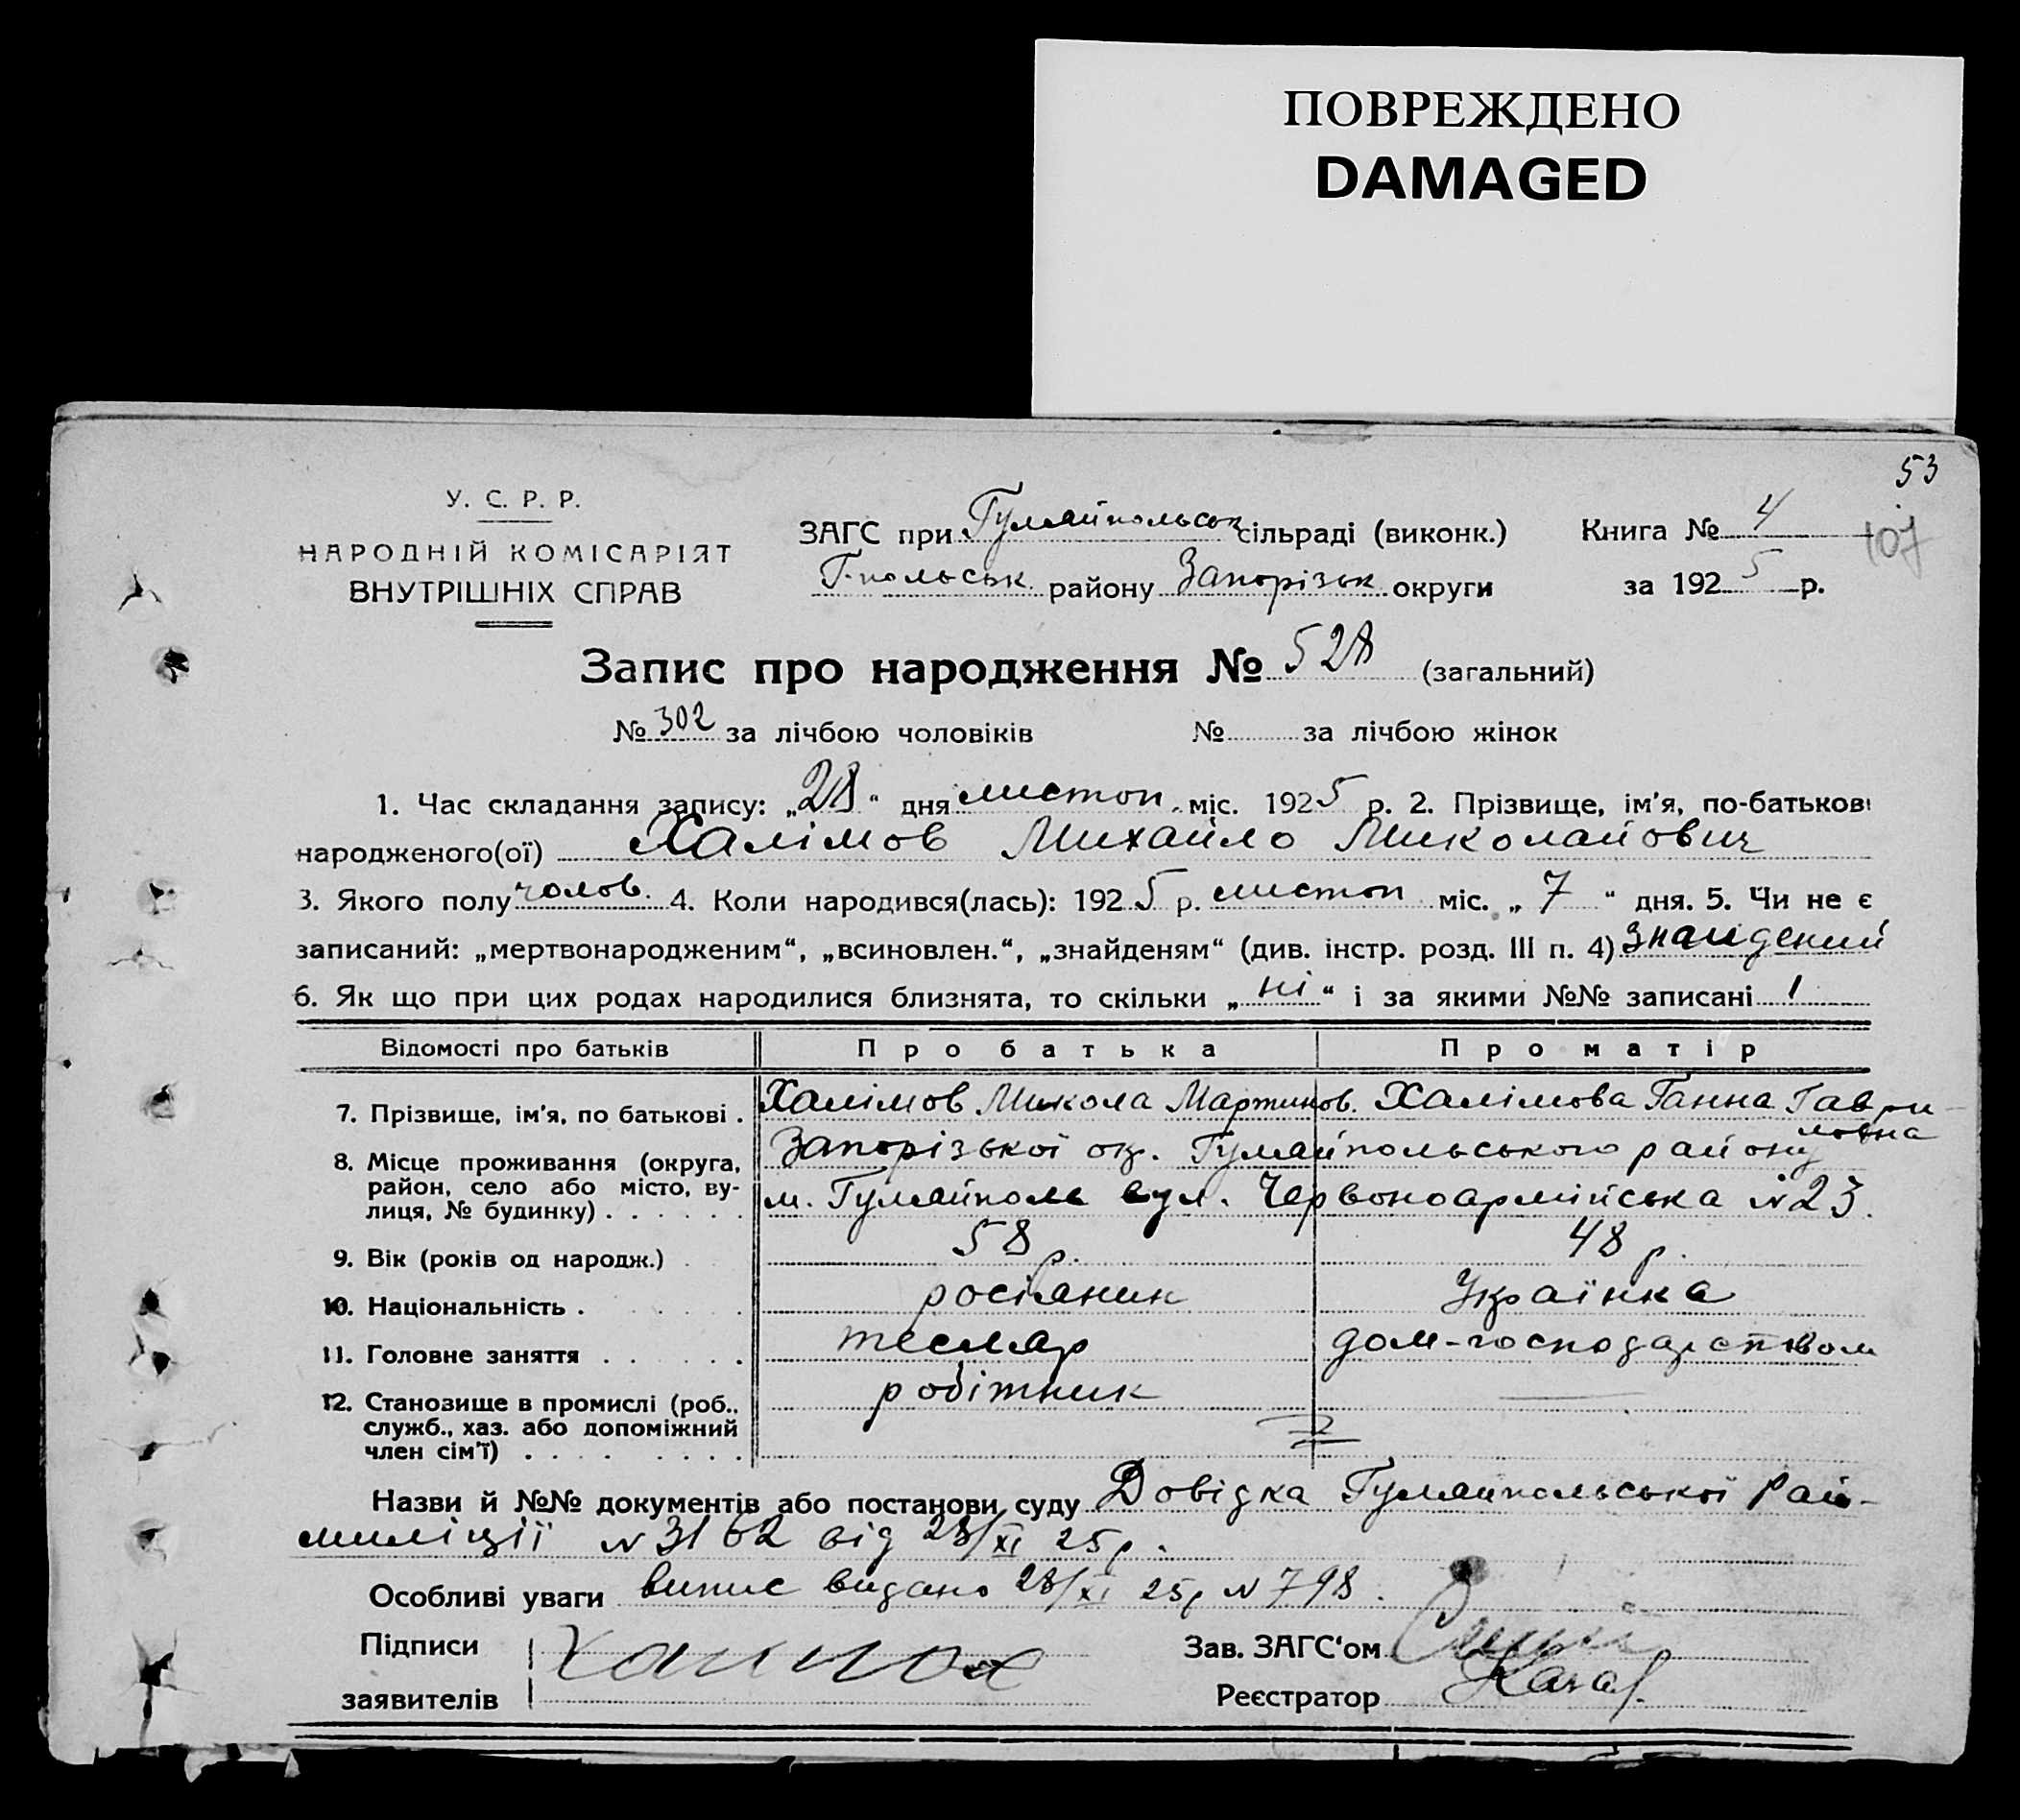 ПОВРЕЖДЕНО
DAMAGED
53
107
У. С. Р. Р.
НАРОДНІЙ КОМІСАРІЯТ
ВНУТРІШНІХ СПРАВ
ЗАГС при Гуляйпольськ сільраді (виконк.) Книга № 4
Г-польськ району Запорізьк округи за 1925 р.
Запис про народження № 528 (загальний)
№ 302 за лічбою чоловіків № за лічбою жінок
1. Час складання запису: „28“ дня листоп. міс. 1925 р. 2. Прізвище, ім'я, по-батькові
народженого(ої) Халімов Михайло Миколайович
3. Якого полу чолов. 4. Коли народився(лась): 1925 р. листоп міс. „7“ дня. 5. Чи не є
записаний: „мертвонародженим“, „всиновлен.“, „знайденям“ (див. інстр. розд. III п. 4) знайдений
6. Як що при цих родах народилися близнята, то скільки „ні“ і за якими №№ записані 1
Відомості про батьків Про батька Про матір
7. Прізвище, ім'я, по батькові . Халімов Микола Мартинов. Халімова Ганна Гаври-
ловна
8. Місце проживання (округа, район, село або місто, вулиця, № будинку) . . . . . . Запорізької окр. Гуляйпольського району
м. Гуляйполь вул. Червоноармійська N 23.
9. Вік (років од народж.) . 58 р. 48 р.
10. Національність . росіянин Українка
11. Головне заняття . . . . . . тесляр дом-господарством
12. Становище в промислі (роб., служб., хаз. або допоміжний член сім'ї) . . . . . . . робітник
Назви й №№ документів або постанови суду Довідка Гуляйпольської Рай-
міліції N 3162 від 28/XI 25 р.
Особливі уваги випис видано 28/XI 25 р N 798.
Підписи
заявителів
Зав. ЗАГС'ом
Реєстратор